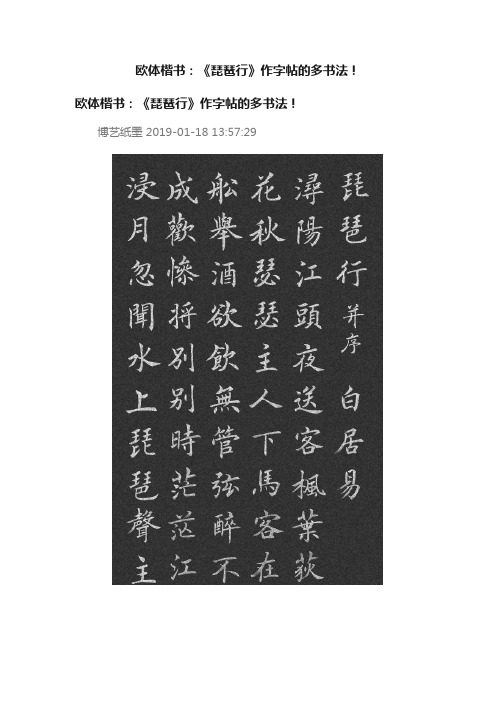 欧体楷书：《琵琶行》作字帖的多书法！
欧体楷书：《琵琶行》作字帖的多书法！
博艺纸墨 2019-01-18 13:57:29
琵琶行 并序 白居易
潯陽江頭夜送客楓葉荻
花秋瑟瑟主人下馬客在
舩舉酒欲飲無管弦醉不
成歡慘将别别時茫茫江
浸月忽聞水上琵琶聲主